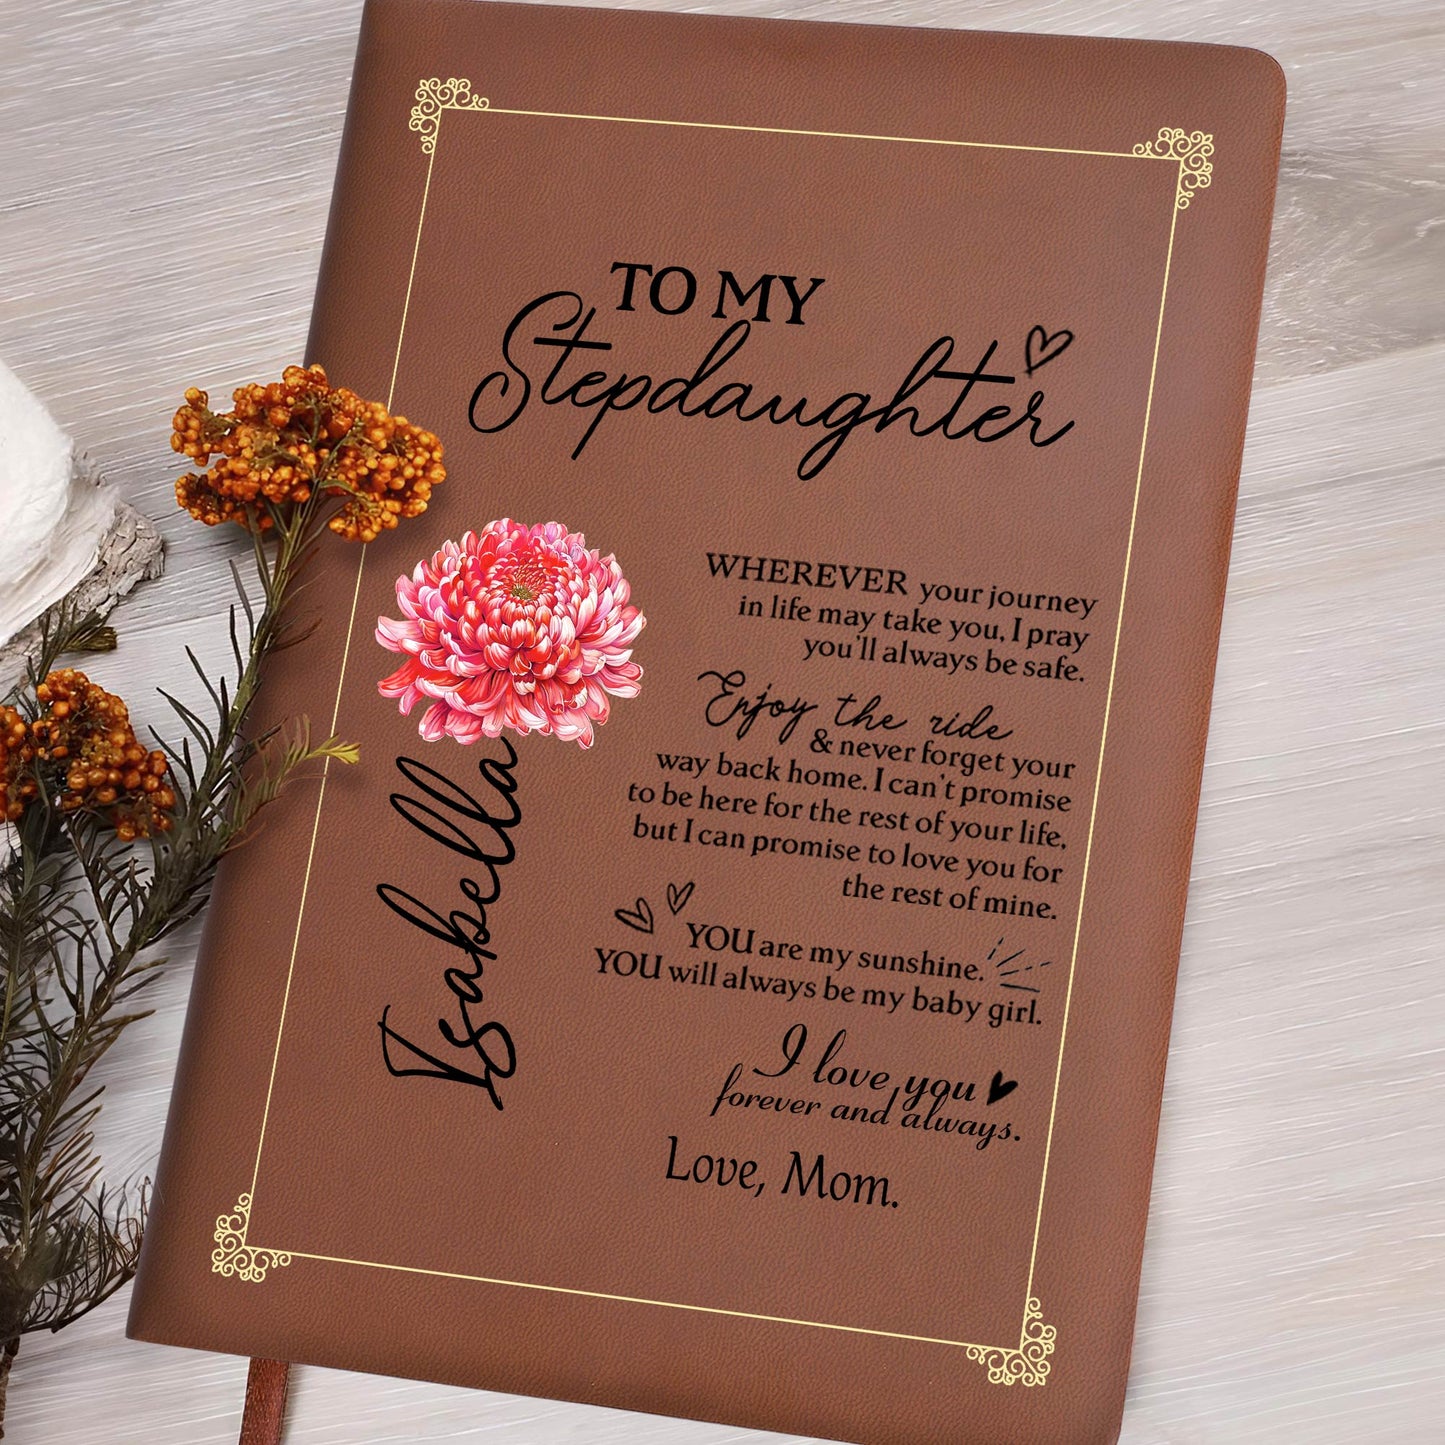 TO MY
Stepdaughter
Isabella
WHEREVER your journey
in life may take you, I pray
you'll always be safe.
Enjoy the ride
& never forget your
way back home. I can't promise
to be here for the rest of your life,
but I can promise to love you for
the rest of mine.
YOU are my sunshine.
YOU will always be my baby girl.
I love you
forever and always.
Love, Mom.